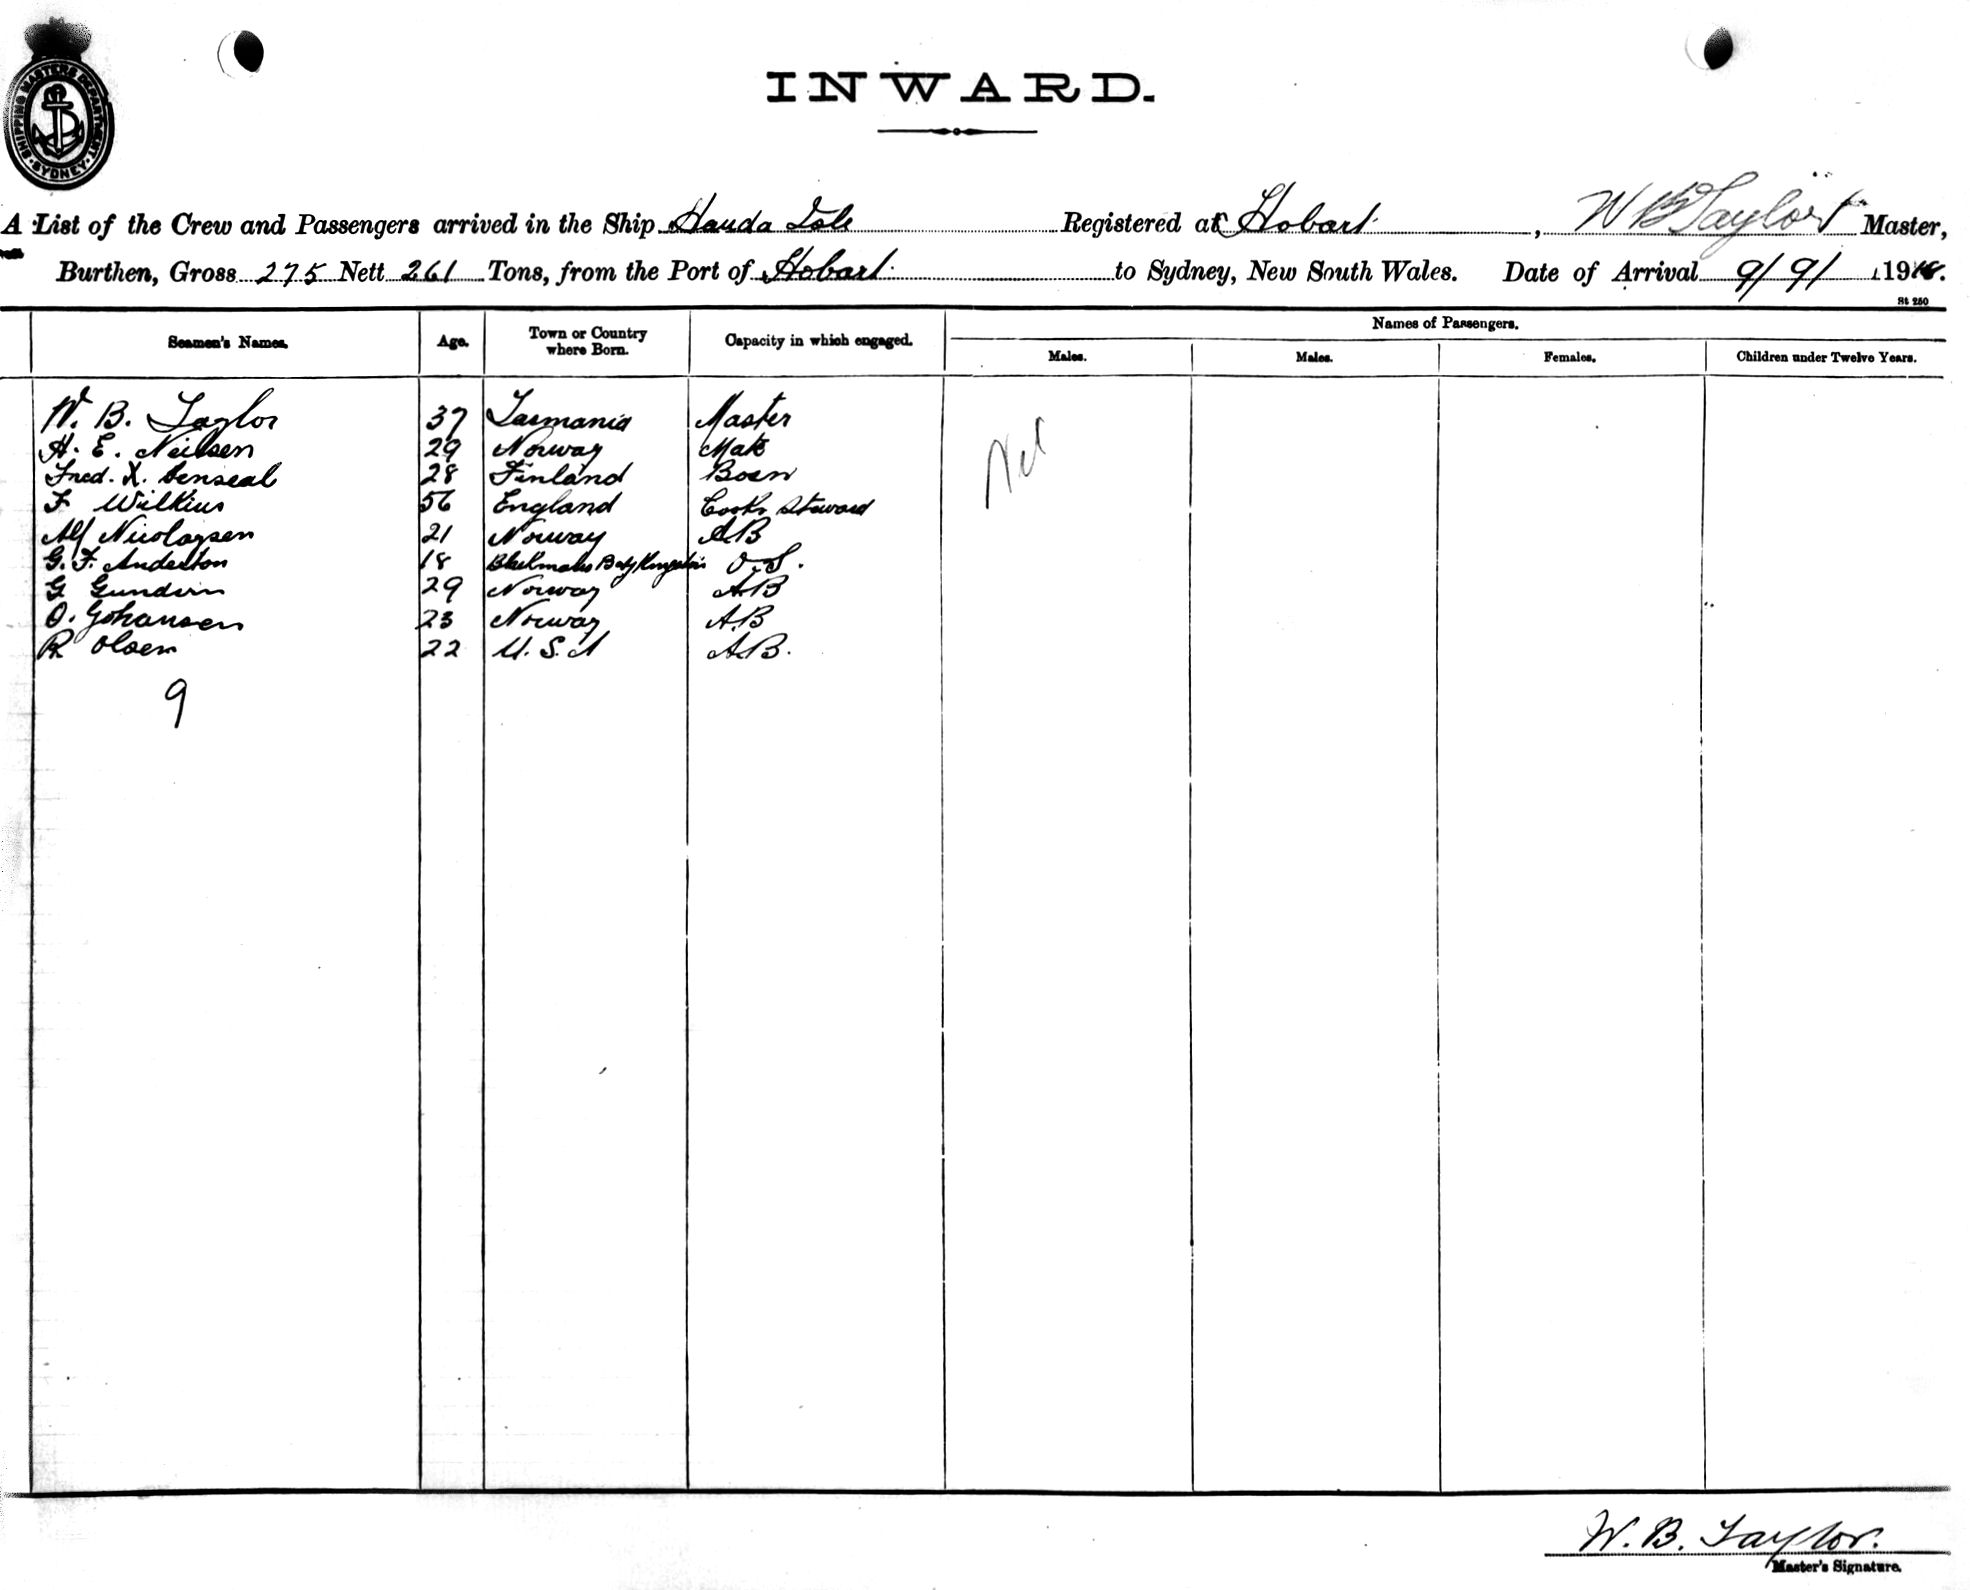 SHIPPING MASTERS DEPARTMENT SYDNEY
INWARD.
A List of the Crew and Passengers arrived in the Ship Handa Isle Registered at Hobart, W B Taylor Master,
Burthen, Gross 275 Nett 261 Tons, from the Port of Hobart to Sydney, New South Wales. Date of Arrival 9/9/ 1918.
St 250
Seamen's Names. Age. Town or Country where Born. Capacity in which engaged. Names of Passengers.
Males. Males. Females. Children under Twelve Years.
W. B. Taylor 37 Tasmania Master Nil
H. E. Neilsen 29 Norway Mate
Fred. X. 28 Finland Bosn
F Wilkins 56 England Cook & Steward
Alf Nicolaysen 21 Norway AB
G. F. Anderton 18 Blackmans Bay Kingston O.S.
G 29 Norway AB
O. Johansen 23 Norway A.B
R Olsen 22 U.S.A A.B.
9
W. B. Taylor.
Master's Signature.